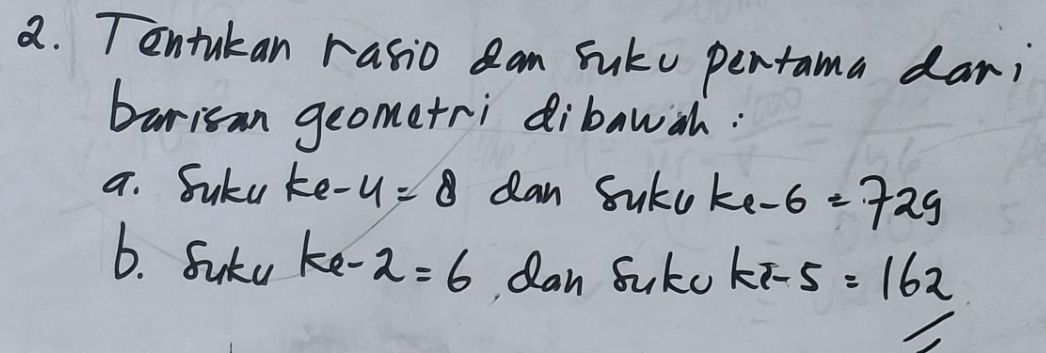 2. Tentukan rasio dan suku pertama dari
barisan geometri dibawah :
a. Suku ke-4 = 8 dan Suku ke-6 = 729
b. Suku ke-2 = 6, dan Suku ke-5 = 162